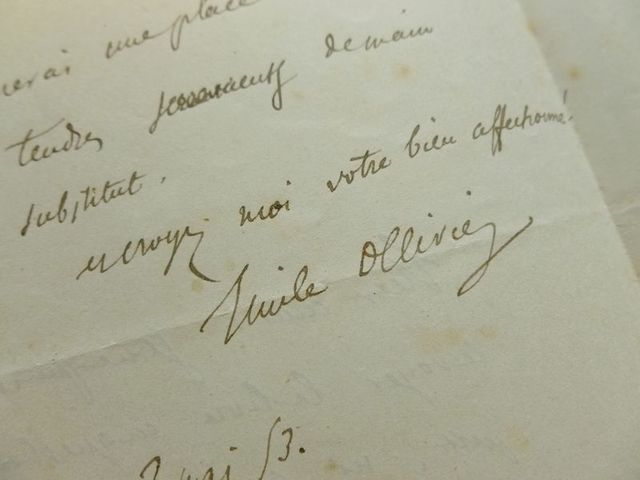 une place
tendre serment demain
substitut.
croyez moi votre bien affectionné!
Emile Ollivier
mai 53.